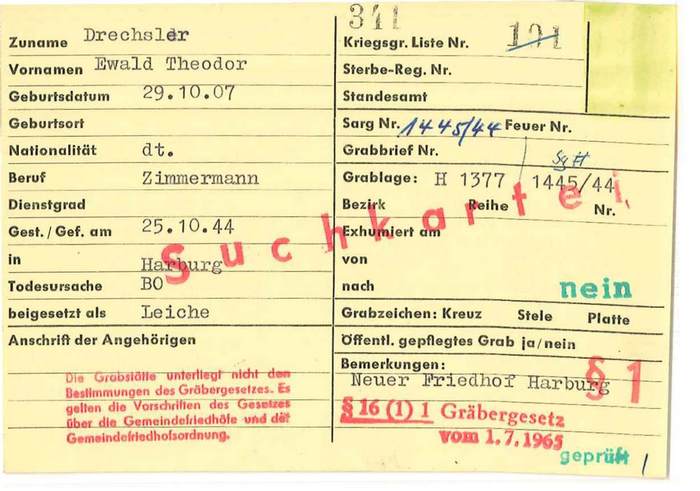 341
Zuname Drechsler
Kriegsgr. Liste Nr. 101
Vornamen Ewald Theodor
Sterbe-Reg. Nr.
Geburtsdatum 29.10.07
Standesamt
Geburtsort
Sarg Nr. 1445/44 Feuer Nr.
Nationalität dt.
Grabbrief Nr.
Beruf Zimmermann
Grablage: H 1377 1445/44
Dienstgrad
Bezirk Reihe Nr.
Gest./Gef. am 25.10.44
Exhumiert am
Suchkartei
in Harburg
von
Todesursache BO
nach
nein
beigesetzt als Leiche
Grabzeichen: Kreuz Stele Platte
Anschrift der Angehörigen
Öffentl. gepflegtes Grab ja/nein
Bemerkungen:
Neuer Friedhof Harburg
§ 1
Die Grabstätte unterliegt nicht den
Bestimmungen des Gräbergesetzes. Es
gelten die Vorschriften des Gesetzes
über die Gemeindefriedhöfe und der
Gemeindefriedhofsordnung.
§ 16 (1) 1 Gräbergesetz
vom 1.7.1965
geprüft